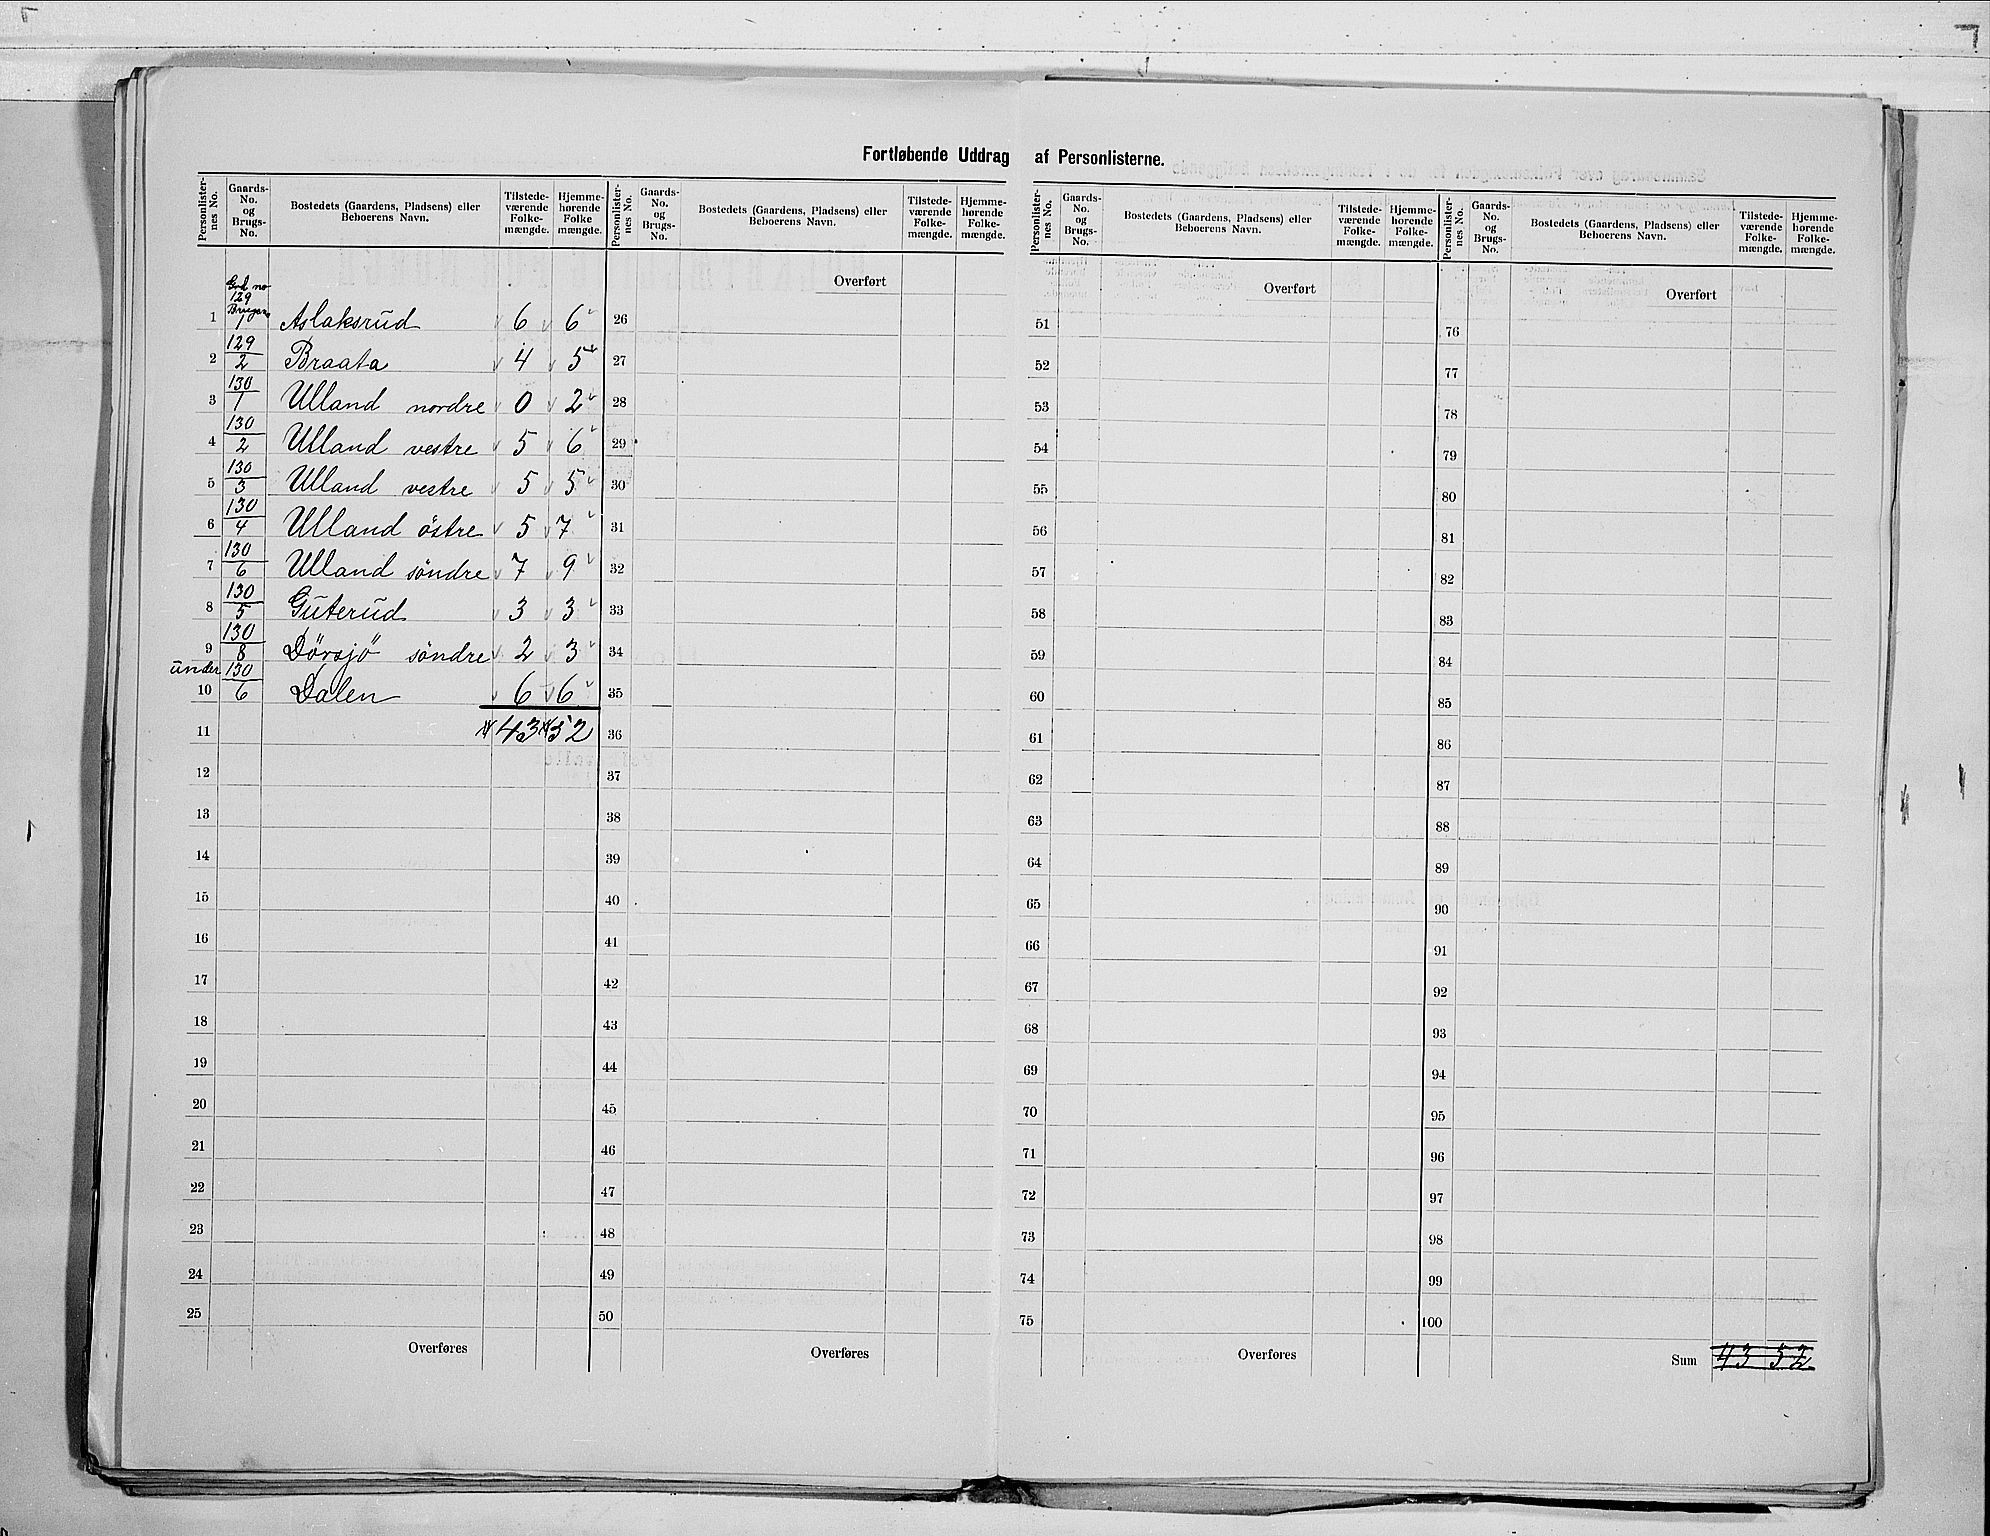 Fortløbende Uddrag af Personlisterne.
Personlister-nes No. Gaards-No. og Brugs-No. Bostedets (Gaardens, Pladsens) eller Beboerens Navn. Tilstede-værende Folke-mængde. Hjemme-hørende Folke mængde.
Personlister-nes No. Gaards-No. og Brugs-No. Bostedets (Gaardens, Pladsens) eller Beboerens Navn. Tilstede-værende Folke-mængde. Hjemme-hørende Folke-mængde.
Personlister-nes No. Gaards-No. og Brugs-No. Bostedets (Gaardens, Pladsens) eller Beboerens Navn. Tilstede-værende Folke-mængde. Hjemme-hørende Folke-mængde.
Personlister-nes No. Gaards-No. og Brugs-No. Bostedets (Gaardens, Pladsens) eller Beboerens Navn. Tilstede-værende Folke-mængde. Hjemme-hørende Folke-mængde.
Grd no
129
1 1 Aslaksrud 6 6
2 129/2 Braata 4 5
3 130/1 Ulland nordre 0 2
4 130/2 Ulland vestre 5 6
5 130/3 Ulland vestre 5 5
6 130/4 Ulland östre 5 7
7 130/6 Ulland söndre 7 9
8 130/5 Guterud 3 3
9 130/8 Dörsjö söndre 2 3
under
10 130/6 Dalen 6 6
11 43 52
12
13
14
15
16
17
18
19
20
21
22
23
24
25
Overføres
Overført
26
27
28
29
30
31
32
33
34
35
36
37
38
39
40
41
42
43
44
45
46
47
48
49
50
Overføres
Overført
51
52
53
54
55
56
57
58
59
60
61
62
63
64
65
66
67
68
69
70
71
72
73
74
75
Overføres
Overført
76
77
78
79
80
81
82
83
84
85
86
87
88
89
90
91
92
93
94
95
96
97
98
99
100
Sum 43 52